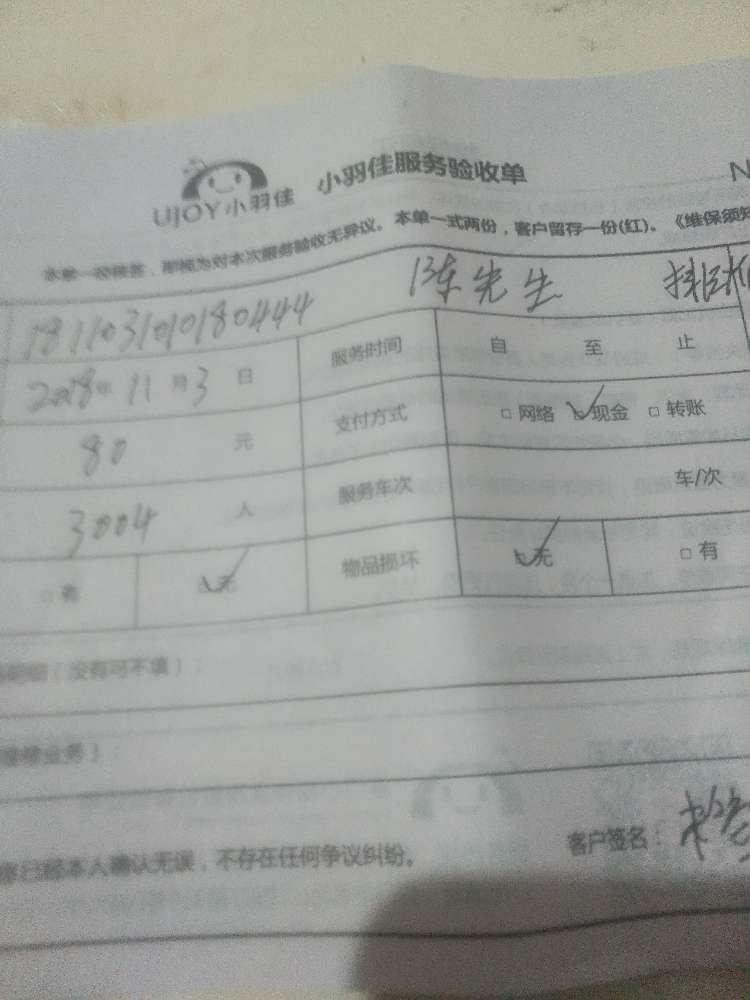 UJOY小羽佳 小羽佳服务验收单 N
本单一经签署，即视为对本次服务验收无异议。本单一式两份，客户留存一份(红)。《维保须知
181103101080444 陈先生
2018年11月3日 服务时间 自 至 止
80 元 支付方式 □ 网络 ☑ 现金 □ 转账
3004 人 服务车次 车/次
□ 有 ☑ 无 物品损坏 ☑ 无 □ 有
明细（没有可不填）：
维修业务）：
已经本人确认无误，不存在任何争议纠纷。 客户签名：